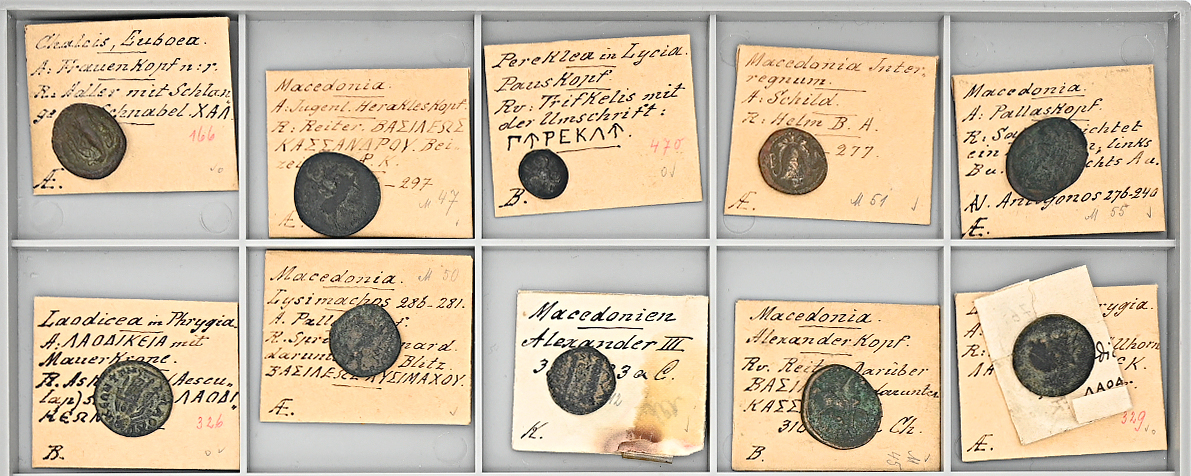 Chalcis, Euboea.
A: Frauenkopf n: r.
R: Adler mit Schlan
ge Schnabel. ΧΑΛ
166
Æ.
Macedonia.
A. Jugenl. Herakleskopf.
R: Reiter. ΒΑΣΙΛΕΩΣ
ΚΑΣΣΑΝΔΡΟΥ. Bei-
K.
-297
M 47
Æ
Pereklea in Lycia.
Panskopf
Rv: Trifkelis mit
der Umschrift:
Γ↑ΡΕΚΛ↑.
470
B.
Macedonia Inter-
regnum.
A: Schild.
R: Helm B. A.
-277.
M 51
Æ.
Macedonia.
A: Pallaskopf.
R: richtet
ein links
Bu. chts Au.
Antigonos 276-240
M 55
Æ.
Laodicea in Phrygia
A. ΛΑΟΔΙΚΕΙΑ mit
Mauerkrone.
R. Ask (Aescu-
lap) ΛΑΟΔΙ
ΚΕΩΝ
326
B.
M 50
Macedonia.
Lysimachos 286-281.
A. Pall
R. Spri
darun Blitz
ΒΑΣΙΛΕΩΣ ΛΥΣΙΜΑΧΟΥ.
Æ.
Macedonien
Alexander III
3 3 a C.
K.
Macedonia.
Alexanderkopf.
Rv. Reit darüber
ΒΑΣΙ darunter
ΚΑΣΣ
310 Ch.
M 45
B.
rygia.
A
R: üllhorn
ΛΑ ΕΚ.
ΛΑΟΔ.
329
Æ.